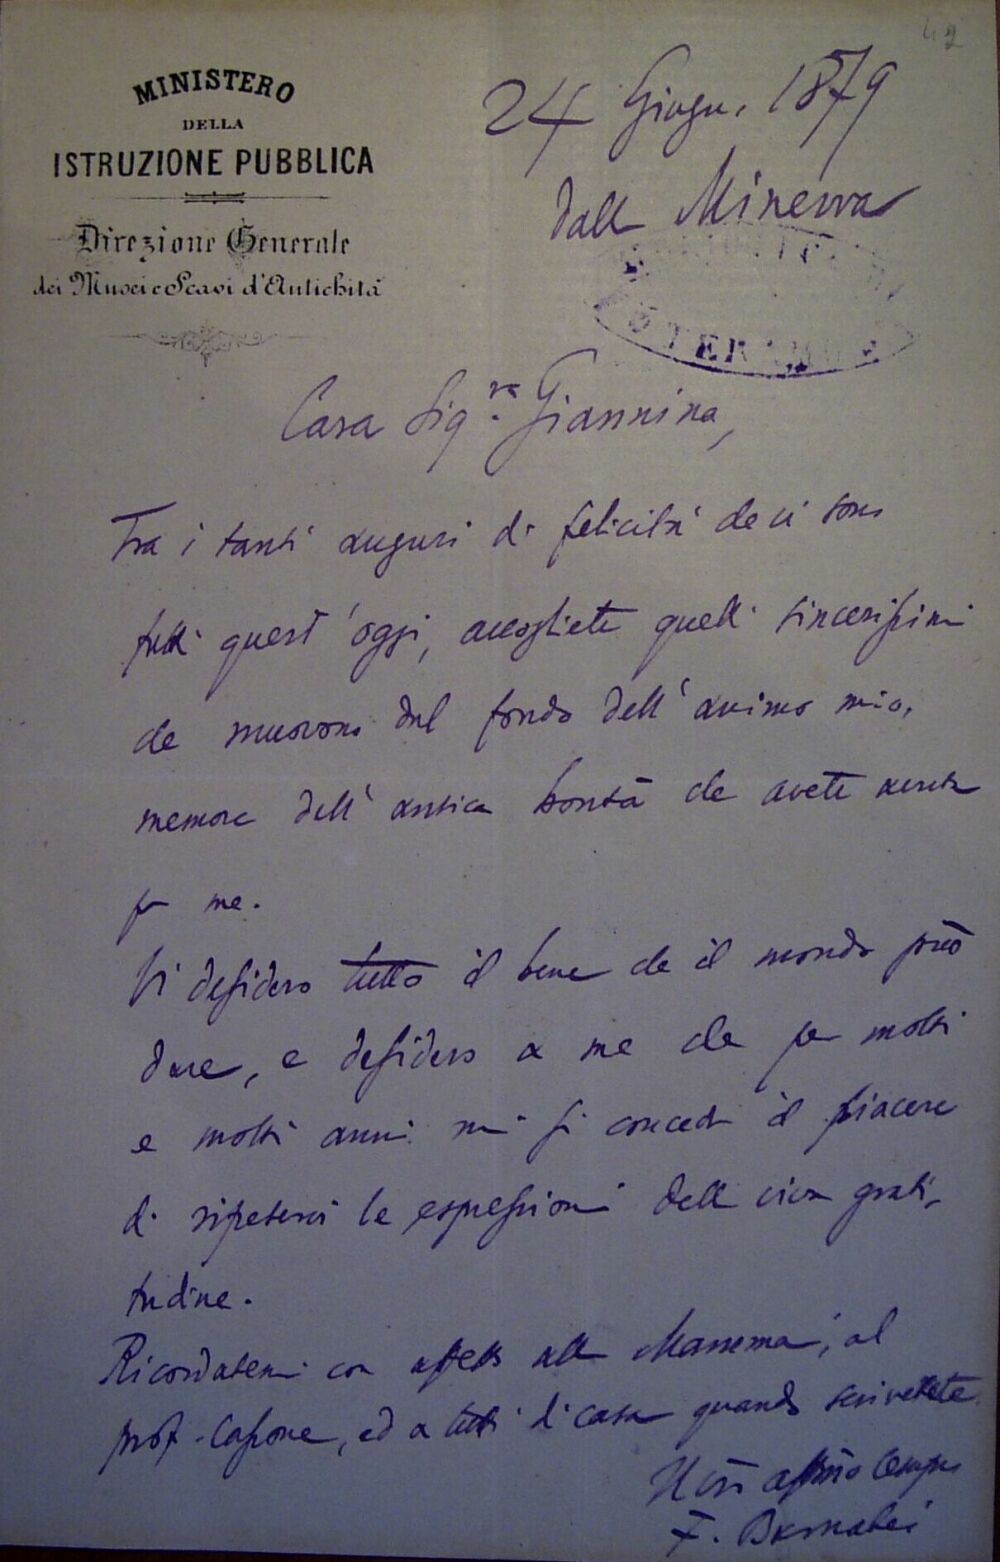 42
MINISTERO
DELLA
ISTRUZIONE PUBBLICA
Direzione Generale
dei Musei e Scavi d'Antichità
24 Giugn. 1879
dalla Minerva
TERAMO
Cara Sigra. Giannina,
Tra i tanti auguri di felicità che vi sono
fatti quest'oggi, accogliete quelli sincerissimi
che muovono dal fondo dell'animo mio,
memore dell'antica bontà che avete avuta
per me.
Vi desidero tutto il bene che il mondo può
dare, e desidero a me che per molti
e molti anni mi si conceda il piacere
di ripetervi le espressioni della viva grati-
tudine.
Ricordatemi con affetto alla Mamma, al
prof. Capone, ed a tutti di casa quando scriverete
affmo
F. Barnabei